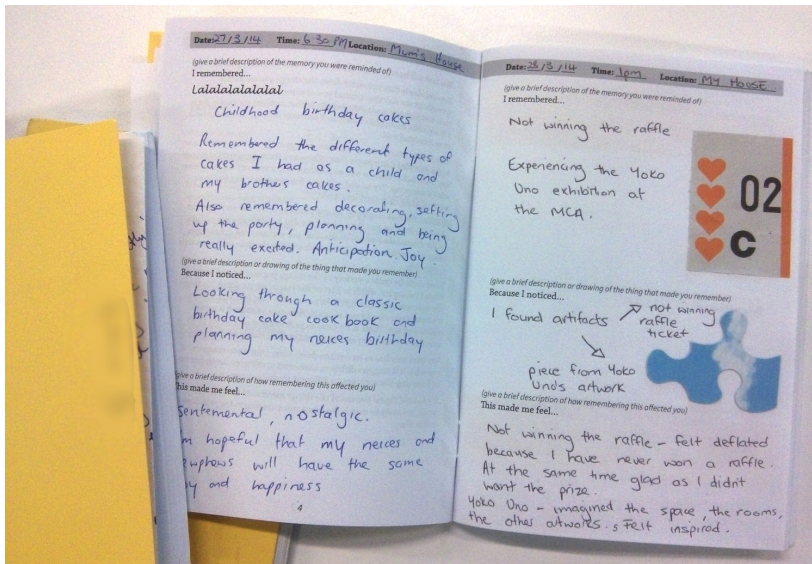 Date: 27/3/14 Time: 6 30 PM Location: Mum's House
(give a brief description of the memory you were reminded of)
I remembered...
Lalalalalalalal
Childhood birthday cakes
Remembered the different types of
cakes I had as a child and
my brothers cakes.
Also remembered decorating, setting
up the party, planning and being
really excited. Anticipation Joy.
(give a brief description or drawing of the thing that made you remember)
Because I noticed...
Looking through a classic
birthday cake cook book and
planning my neices birthday
(give a brief description of how remembering this affected you)
This made me feel...
Sentemental, nostalgic.
hopeful that my neices and
will have the same
and happiness
4
Date: 28/3/14 Time: 1pm Location: MY HOUSE
(give a brief description of the memory you were reminded of)
I remembered...
Not winning the raffle
Experiencing the Yoko
Uno exhibition at
the MCA.
02
C
(give a brief description or drawing of the thing that made you remember)
Because I noticed...
I found artifacts
not winning
raffle
ticket
piece from Yoko
Uno's artwork
(give a brief description of how remembering this affected you)
This made me feel...
Not winning the raffle - felt deflated
because I have never won a raffle.
At the same time glad as I didn't
want the prize.
Yoko Uno - imagined the space, the rooms,
the other artworks. 5 Felt inspired.